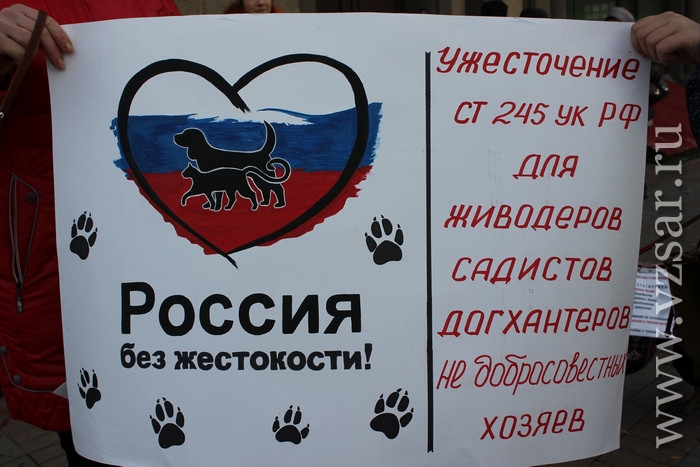 Россия
без жестокости!
Ужесточение
ст 245 ук РФ
для
живодеров
садистов
догхантеров
не добросовестных
хозяев
www.vzsar.ru